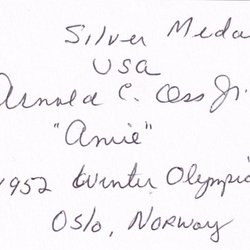 Silver Meda
USA
Arnold C. Oss Jr.
"Arnie"
1952 Winter Olympic
Oslo, Norway